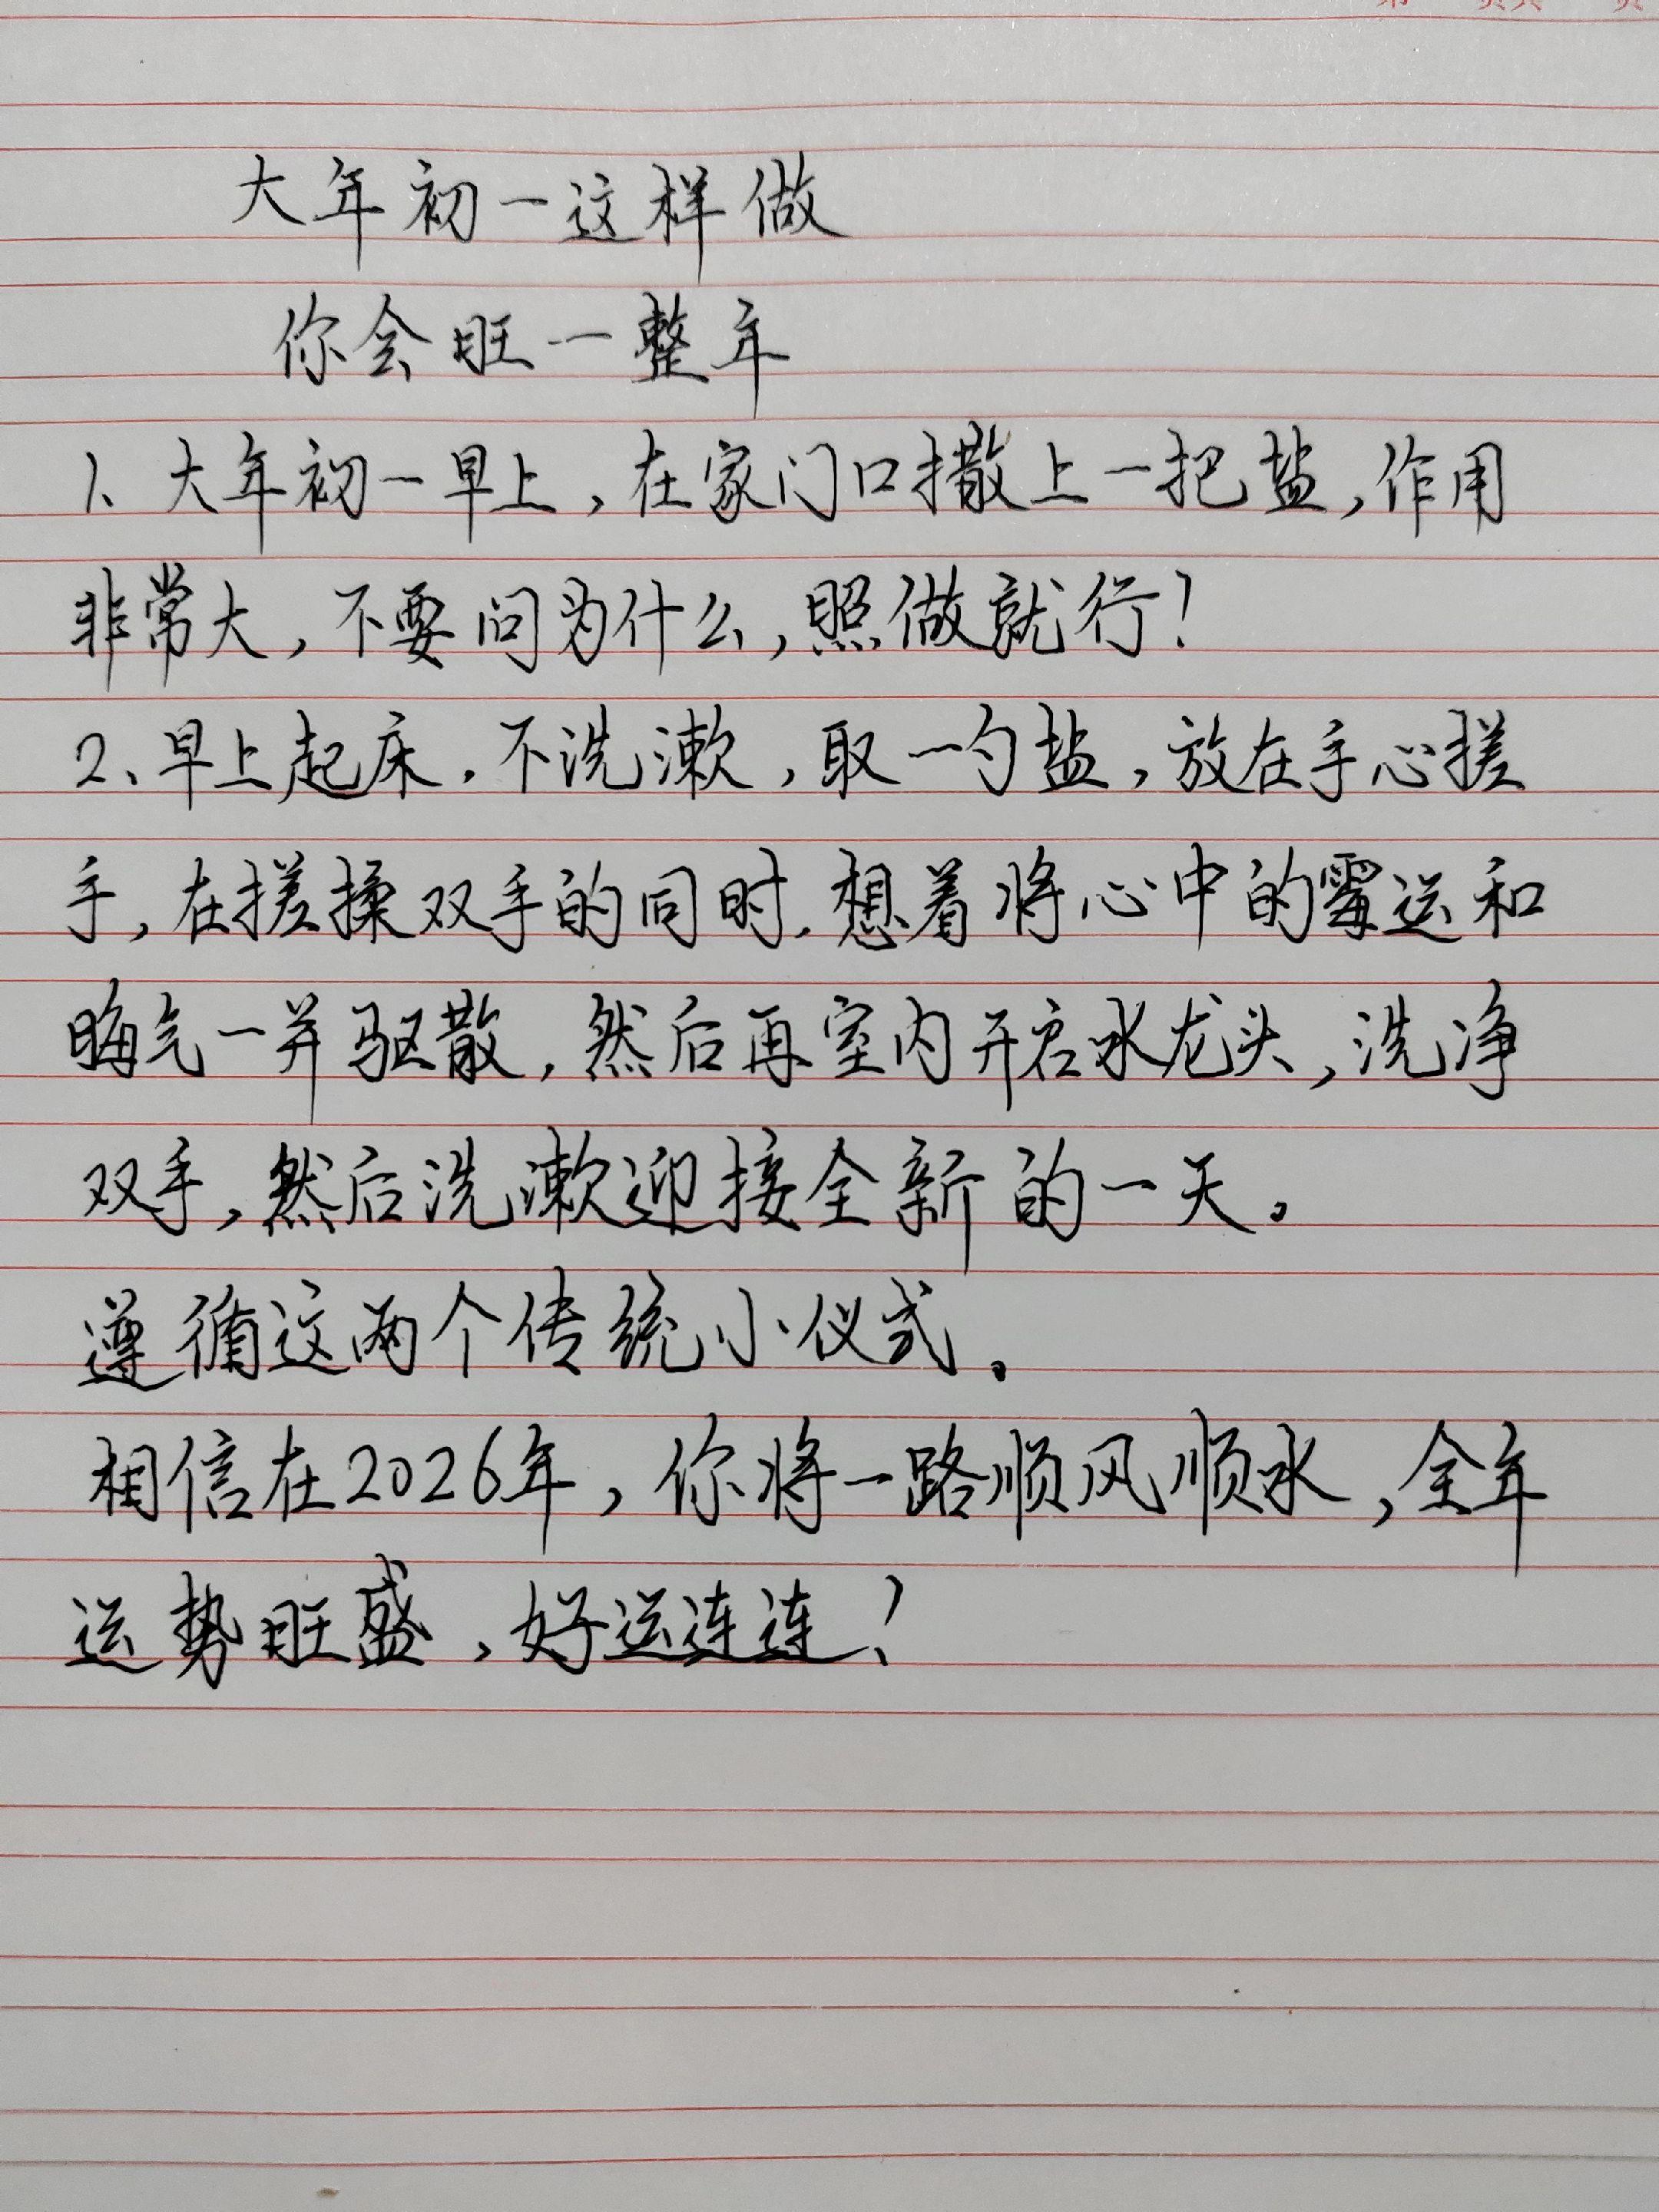 大年初一这样做
你会旺一整年
1、大年初一早上,在家门口撒上一把盐,作用
非常大,不要问为什么,照做就行!
2、早上起床,不洗漱,取一勺盐,放在手心搓
手,在搓揉双手的同时,想着将心中的霉运和
晦气一并驱散,然后再室内开启水龙头,洗净
双手,然后洗漱迎接全新的一天。
遵循这两个传统小仪式。
相信在2026年,你将一路顺风顺水,全年
运势旺盛,好运连连!